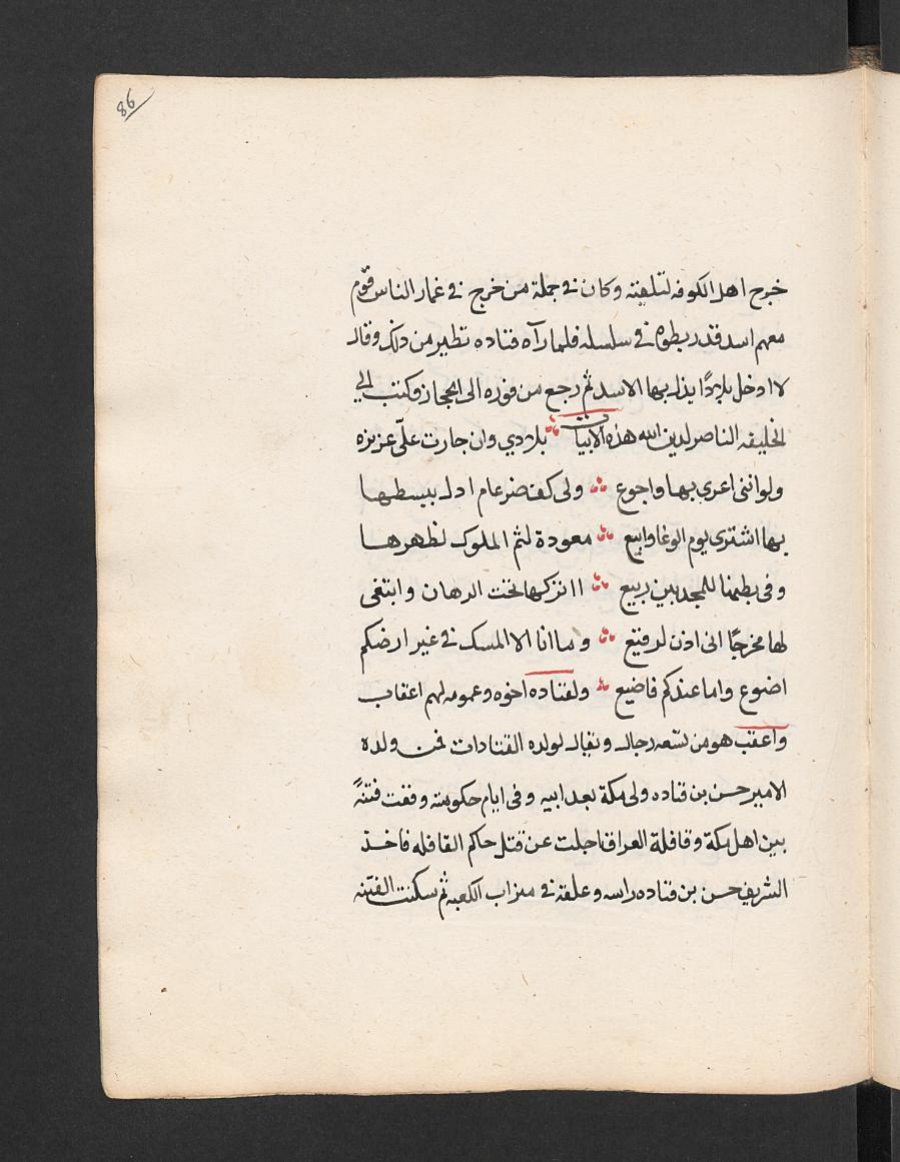 86
خرج اهل الكوفه لتلقيته وكان في جملة من خرج في غمار الناس قوم
معهم اسد قد ربطوه في سلسله فلما رآه قتاده تطير من ذلك وقال
لا ادخل بلادًا يذل بها الاسد ثم رجع من فوره الى الحجاز وكتب الى
الخليفه الناصر لدين الله هذه الابيات بلادي وان جارت علّي عزيزه
ولو اننى اعرى بها واجوع ولى كف ضرغام ادل ببسطها
بها اشترى يوم الوغا وابيع معودة لثم الملوك لظهرها
وفى بطنها للمجدبين ربيع ااتركها تحت الرهان وابتغى
لها مخرجًا انى اذن لرقيع وما انا الا المسك في غير ارضكم
اضوع واما عندكم فاضيع ولقتاده اخوه وعمومه لهم اعقاب
واعقب هو من تسعه رجال ويقال لولده القتادات فمن ولده
الامير حسن بن قتاده ولى مكة بعد ابيه وفى ايام حكومته وقعت فتنةً
بين اهل مكة وقافلة العراق اجلت عن قتل حاكم القافله فاخذ
الشريف حسن بن قتاده راسه وعلقه في ميزاب الكعبه ثم سكنت الفتنه